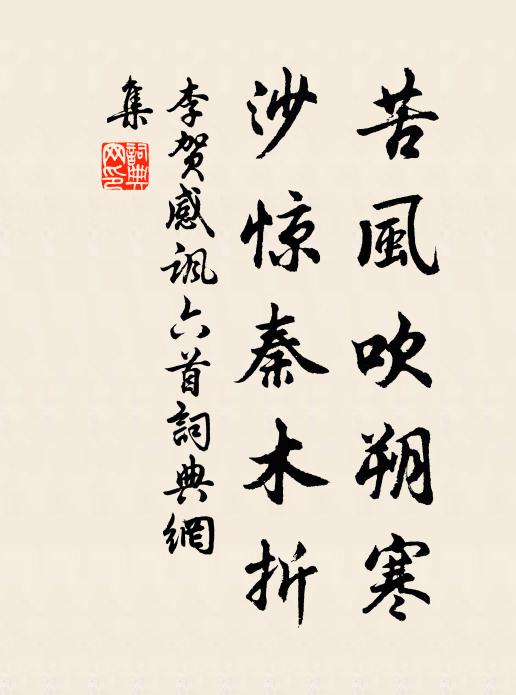 苦風吹朔寒
沙惊秦木折
李贺感讽六首詞典網
集
詞典網印